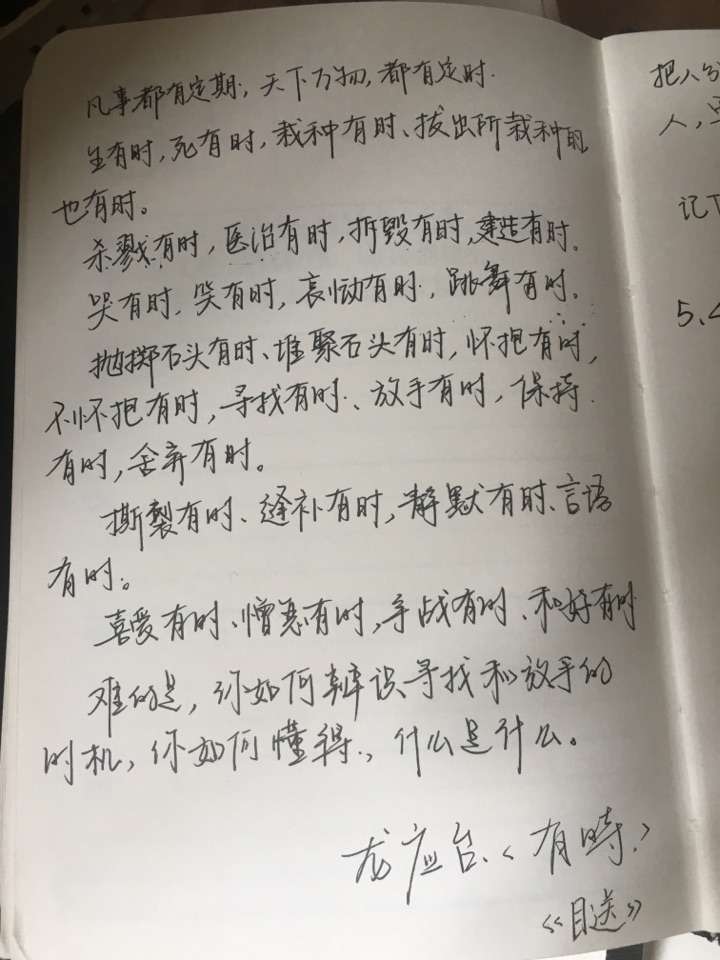 凡事都有定期，天下万物，都有定时.
生有时，死有时，栽种有时、拔出所栽种的
也有时。
杀戮有时，医治有时，拆毁有时，建造有时。
哭有时，笑有时，哀恸有时，跳舞有时。
抛掷石头有时、堆聚石头有时，怀抱有时，
不怀抱有时，寻找有时、放手有时，保持
有时，舍弃有时。
撕裂有时、缝补有时，静默有时、言语
有时。
喜爱有时、憎恶有时，争战有时、和好有时
难的是，你如何辨识寻找和放手的
时机，你如何懂得，什么是什么。
龙应台、〈有時〉
《目送》
把人
人，
记下
5、